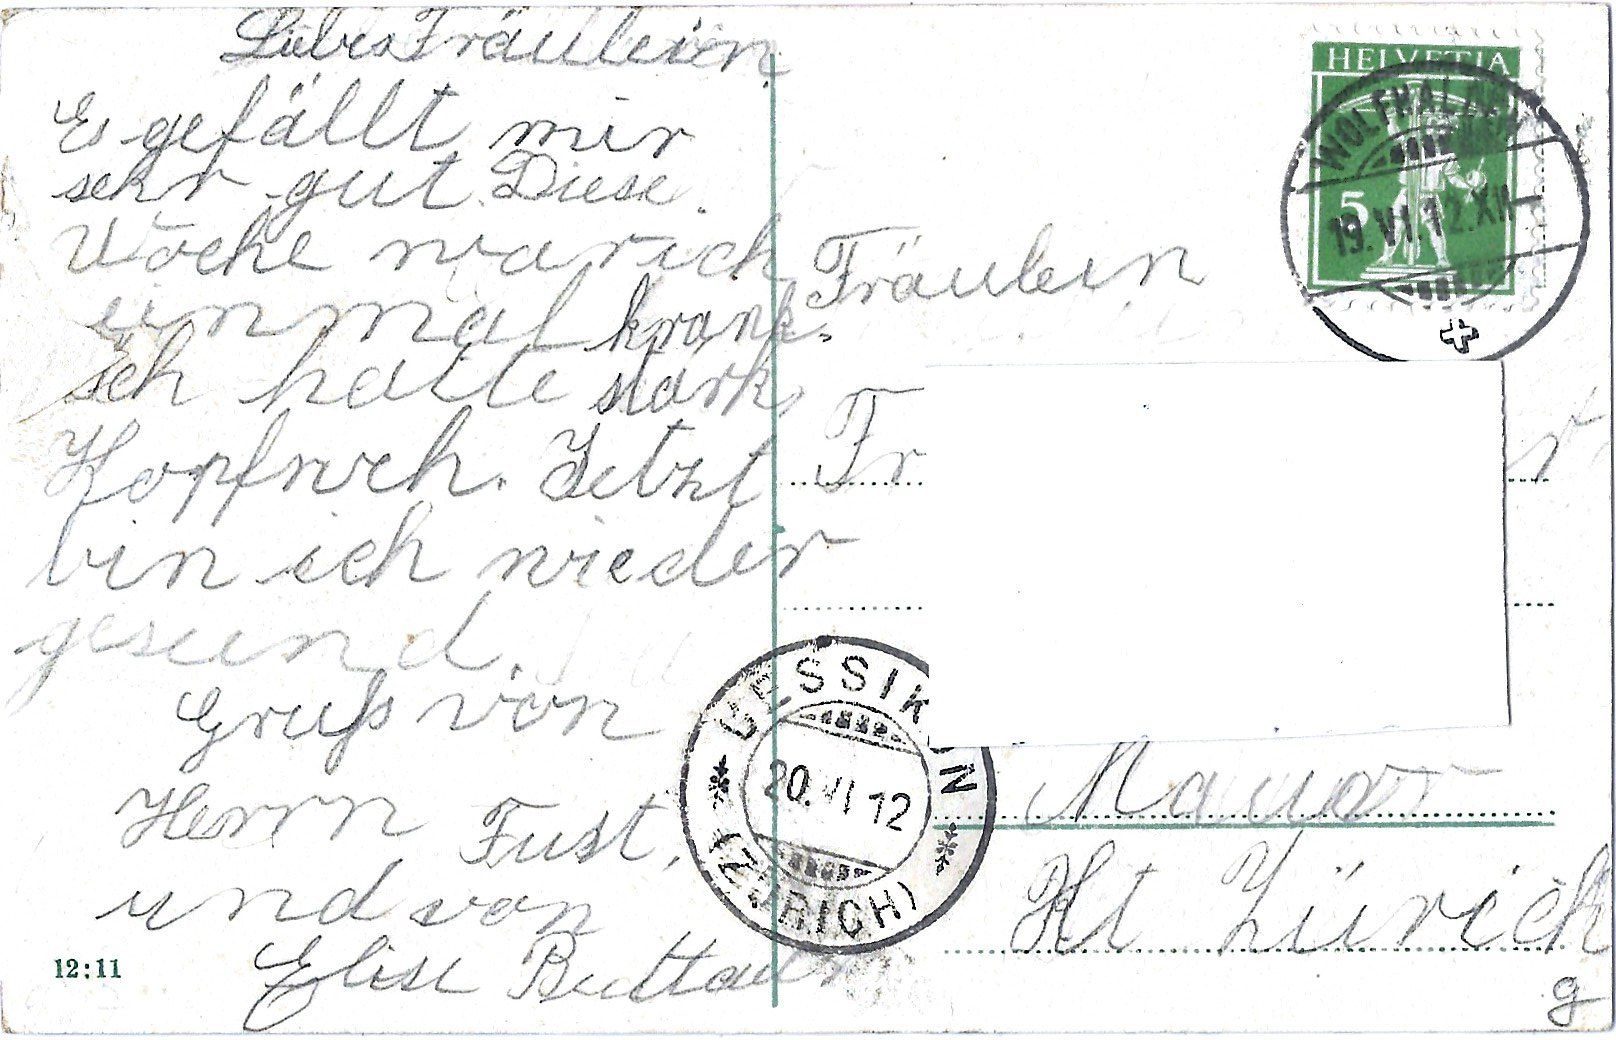 Liebes Fräulein
Es gefällt mir
sehr gut. Diese
Woche war ich
einmal krank.
ich hatte stark
Kopfweh. Jetzt
bin ich wieder
gesund.
Gruß von
Herrn Fust.
und von
Elise
12:11
HELVETIA
5
19.VI.12.XII
Fräulein
Fr
Maur
Kt Zürich
g
20.VI 12
(ZÜRICH)